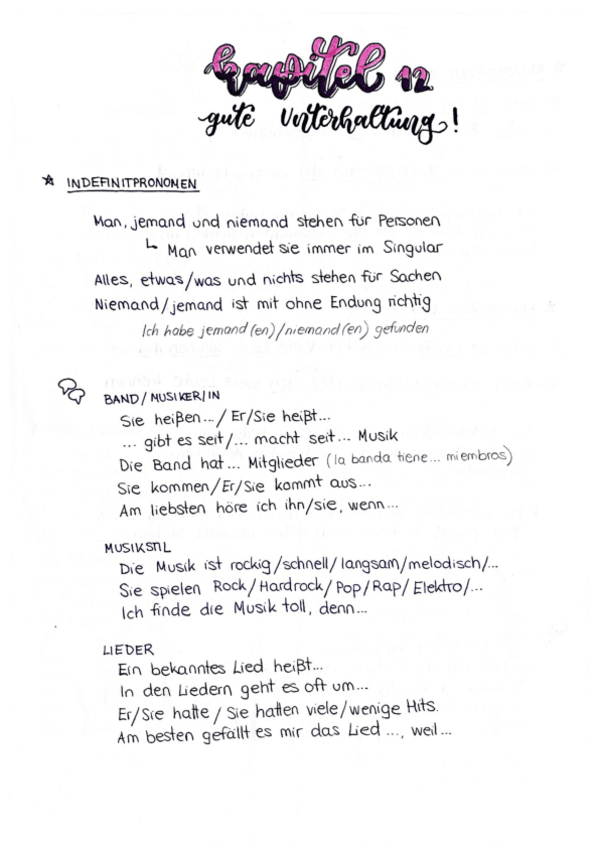 Kapitel 12
gute Unterhaltung!
INDEFINITPRONOMEN
Man, jemand und niemand stehen für Personen
Man verwendet sie immer im Singular
Alles, etwas/was und nichts stehen für Sachen
Niemand/jemand ist mit ohne Endung richtig
Ich habe jemand(en)/niemand(en) gefunden
BAND/MUSIKER/IN
Sie heißen.../ Er/Sie heißt...
... gibt es seit/... macht seit... Musik
Die Band hat... Mitglieder (la banda tiene... miembros)
Sie kommen/Er/Sie kommt aus...
Am liebsten höre ich ihn/sie, wenn...
MUSIKSTIL
Die Musik ist rockig/schnell/langsam/melodisch/...
Sie spielen Rock/Hardrock/Pop/Rap/Elektro/...
Ich finde die Musik toll, denn...
LIEDER
Ein bekanntes Lied heißt...
In den Liedern geht es oft um...
Er/Sie hatte / Sie hatten viele/wenige Hits.
Am besten gefällt es mir das Lied ..., weil...